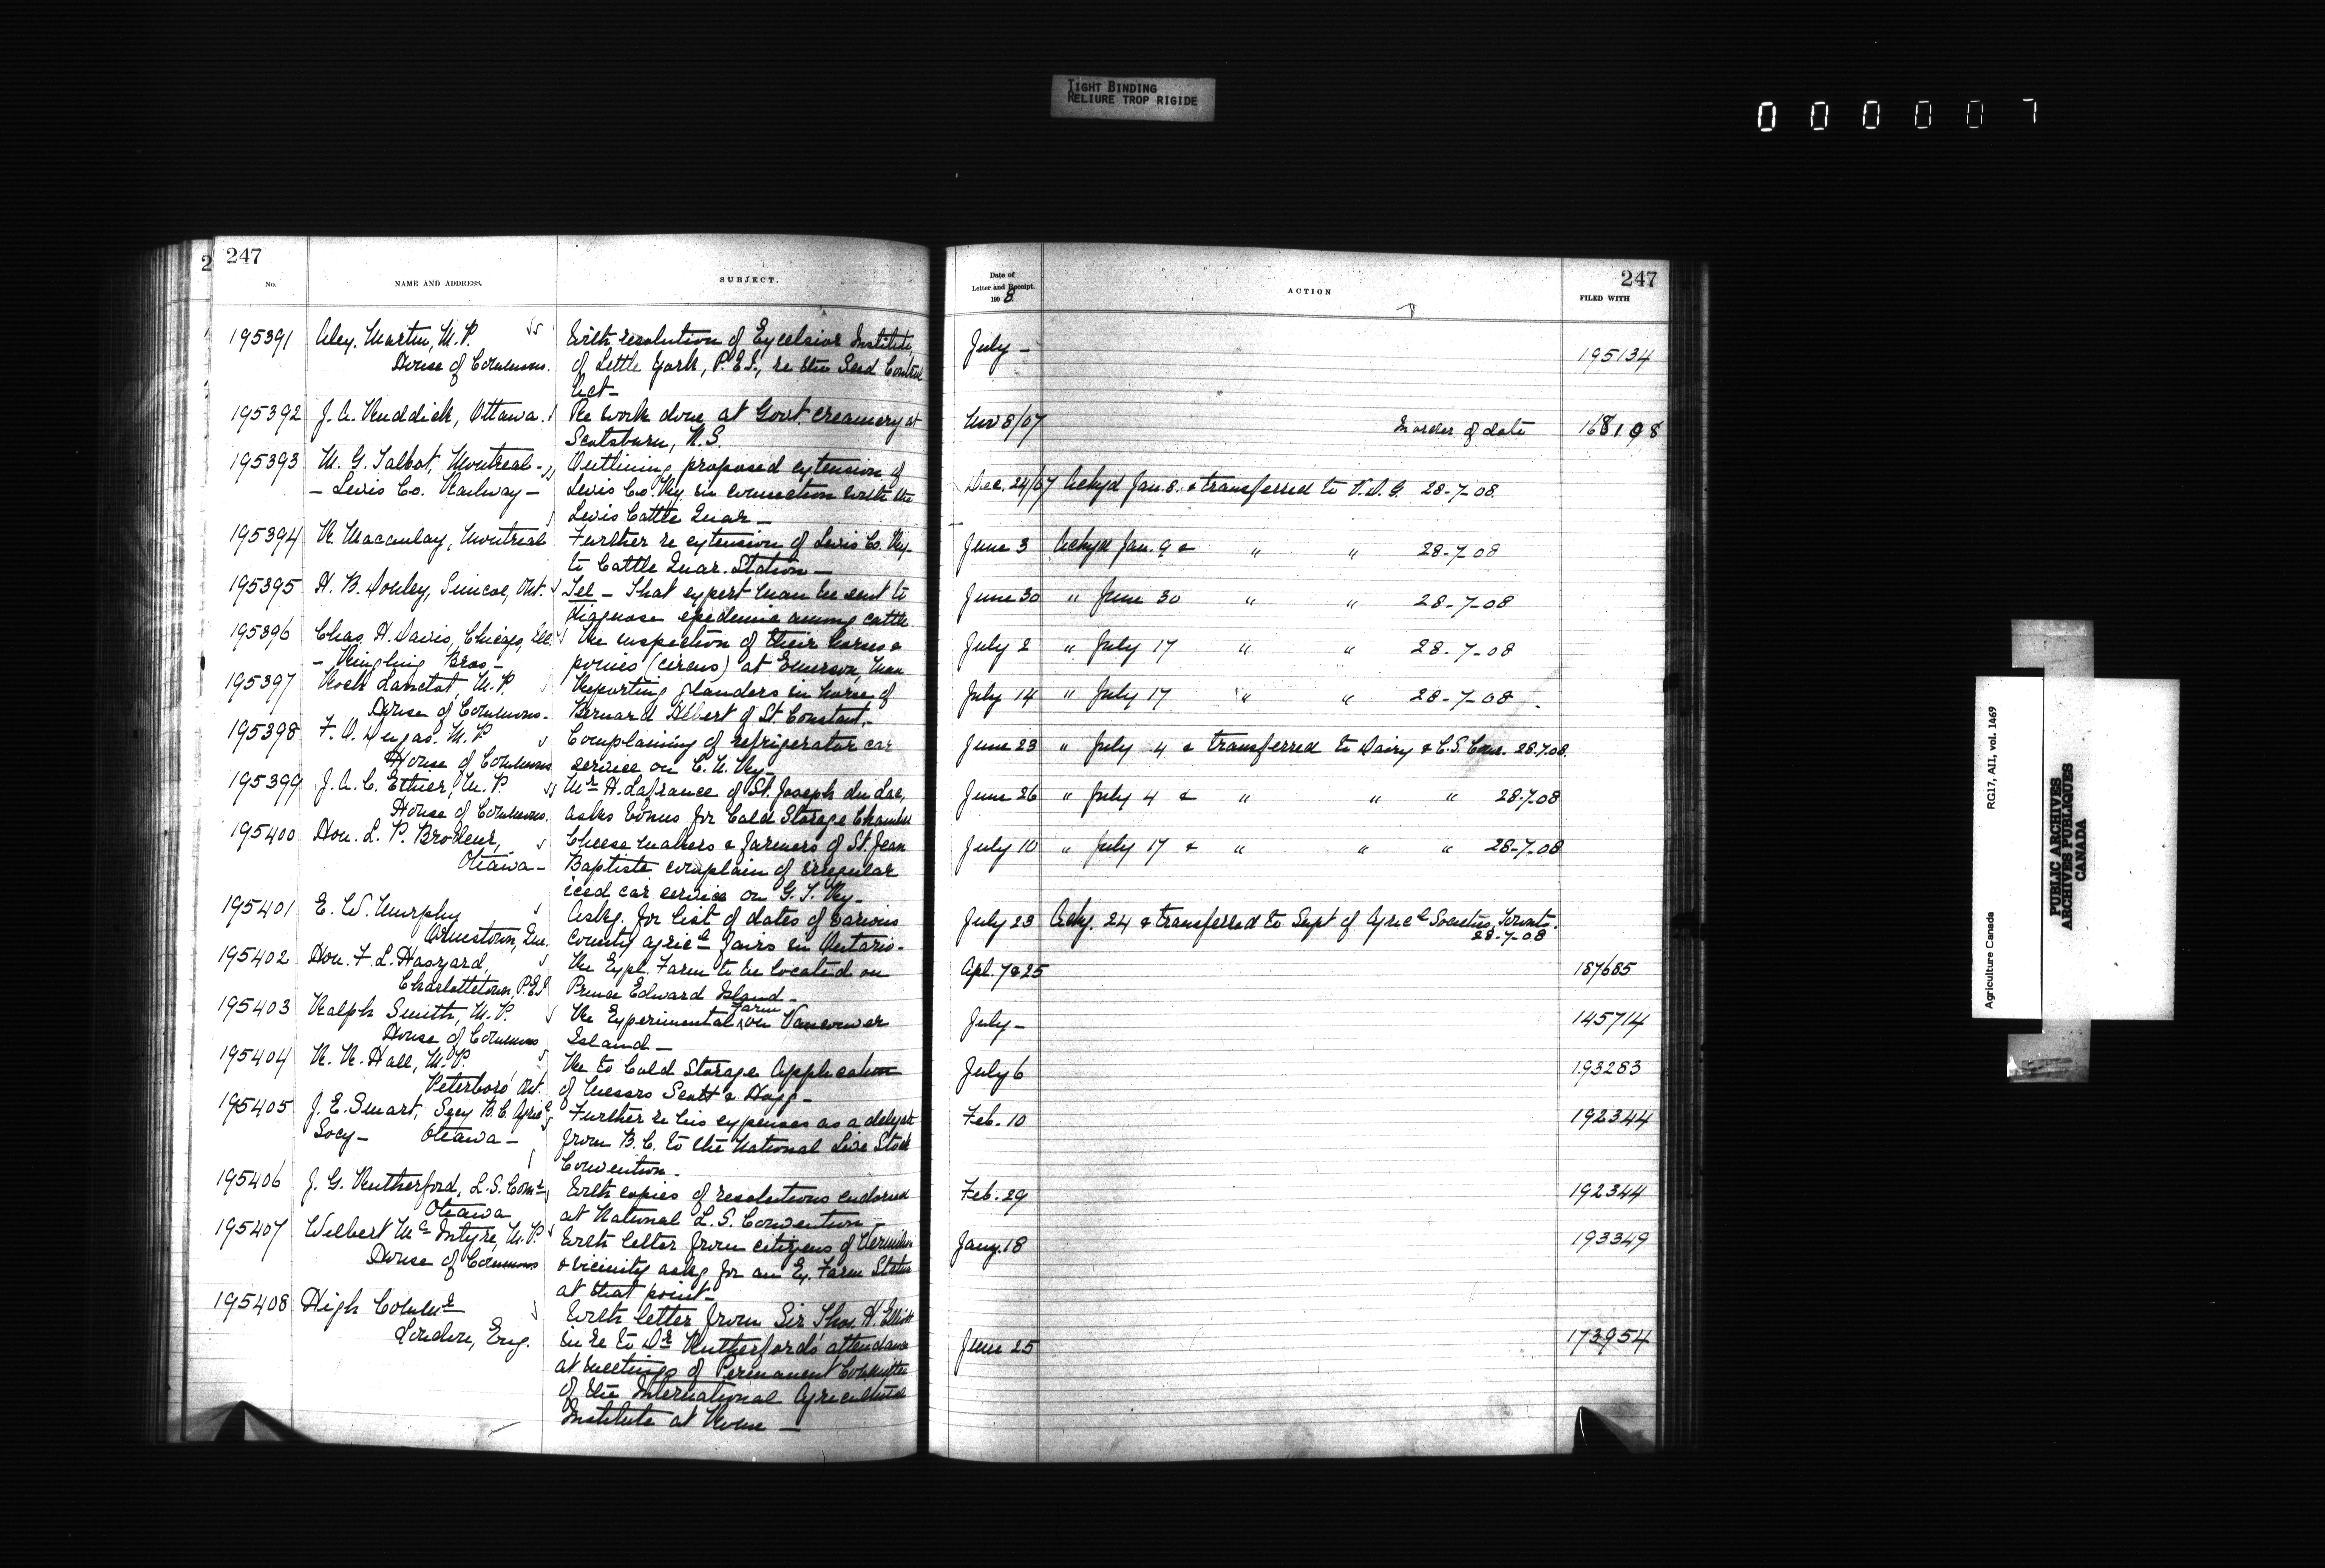 TIGHT BINDING
RELIURE TROP RIGIDE
0 0 0 0 0 7
247
No.
NAME AND ADDRESS.
SUBJECT.
195391 Alex. Martin, M.P.
House of Commons.
With resolution of Excelsior Institute,
of Little York, P.E.I., re the Seed Control
Act—
195392 J. A. Ruddick, Ottawa.
Re work done at Govt. Creamery at
Scotsburn, N.S.
195393 M. G. Talbot, Montreal—
— Levis Co. Railway —
Outlining proposed extension of
Levis Co. Ry. in connection with the
Levis Cattle Quar—
195394 R. Macaulay, Montreal
Further re extension of Levis Co. Ry.
to Cattle Quar. Station—
195395 H. B. Donley, Simcoe, Ont.
Tel — That expert man be sent to
diagnose epidemic among cattle.
195396 Chas. H. Davis, Chicago, Ill.
— Ringling Bros —
Re inspection of their horses &
ponies (circus) at Emerson, Man
195397 Roch Lanctot, M.P.
House of Commons.
Reporting glanders in horse of
Bernard Hébert of St. Constant.—
195398 F. O. Dugas. M.P.
House of Commons
Complaining of refrigerator car
service on C. N. Ry—
195399 J. A. C. Ethier, M.P.
House of Commons.
Mr. H. Lafrance of St. Joseph du Lac,
asks bonus for Cold Storage Chamber
195400 Hon. L. P. Brodeur,
Ottawa—
Cheese makers & farmers of St. Jean
Baptiste complain of irregular
iced car service on G. T. Ry—
195401 E. W. Murphy
Ormstown, Que.
Askg. for list of dates of various
County Agricl. fairs in Ontario.
195402 Hon. F. L. Haszard,
Charlottetown, P.E.I.
Re Expl. Farm to be located on
Prince Edward Island—
195403 Ralph Smith, M.P.
House of Commons
Re Experimental Farm on Vancouver
Island—
195404 R. R. Hall, M.P.
Peterboro, Ont.
Re to Cold Storage Application
of Messrs Scott & Hogg—
195405 J. E. Smart, Secy B.C. Agricl
Socy— Ottawa—
Further re his expenses as a delegate
from B.C. to the National Live Stock
Convention.
195406 J. G. Rutherford, L.S. Comr
Ottawa
With copies of resolutions endorsed
at National L.S. Convention—
195407 Wilbert McIntyre, M.P.
House of Commons
With letter from citizens of Vermilion
& vicinity askg for an Ex. Farm Station
at that point—
195408 High Commr
London, Eng.
With letter from Sir Thos. H. Elliott
in re to Dr. Rutherford's attendance
at meetings of Permanent Committee
of the International Agricultural
Institute at Rome—
Date of
Letter and Receipt.
1908
ACTION
247
FILED WITH
July — 195134
Nov 8/07 In order of date 168198
Dec. 24/07 Ackyd Jan. 8. & transferred to V.D.G. 28-7-08.
June 3 Ackyd Jan. 9 & " " 28-7-08
June 30 " June 30 " " 28-7-08
July 2 " July 17 " " 28-7-08
July 14 " July 17 " " 28-7-08
June 23 " July 4 & transferred to Dairy & C.S. Comr. 28.7.08.
June 26 " July 4 & " " " 28.7.08
July 10 " July 17 & " " " 28-7-08
July 23 Ackg. 24 & transferred to Supt of Agricl Societies, Toronto.
28-7-08
Apl. 7 & 25 187685
July— 145714
July 6 193283
Feb. 10 192344
Feb. 29 192344
Jany. 18 193349
June 25 173954
Agriculture Canada RG17, AII, vol. 1469
PUBLIC ARCHIVES
ARCHIVES PUBLIQUES
CANADA